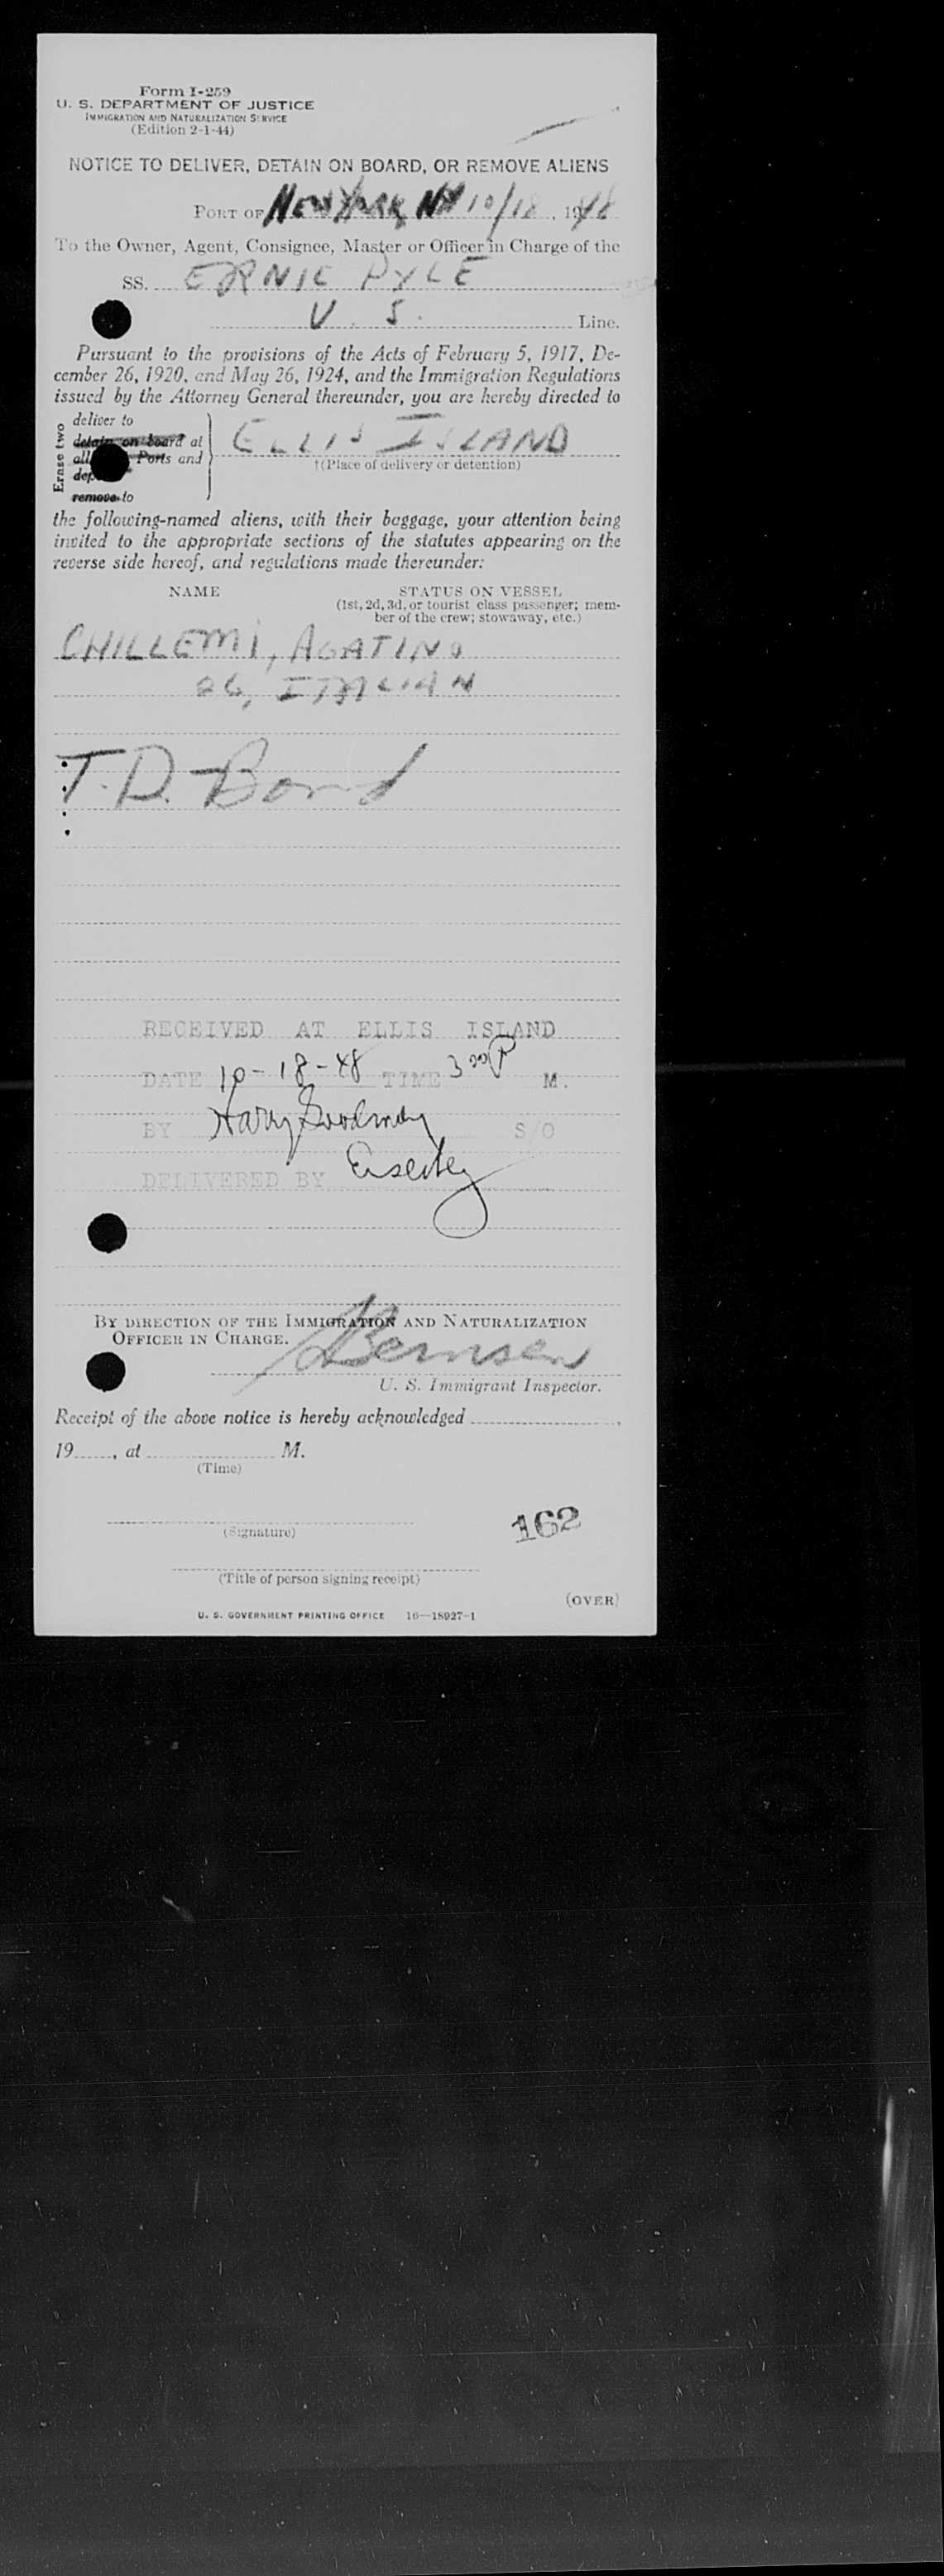 Form I-259
U. S. DEPARTMENT OF JUSTICE
IMMIGRATION AND NATURALIZATION SERVICE
(Edition 2-1-44)
NOTICE TO DELIVER, DETAIN ON BOARD, OR REMOVE ALIENS
PORT OF NEW YORK, NY 10/18, 1948
To the Owner, Agent, Consignee, Master or Officer in Charge of the
SS. ERNIE PYLE
U. S. Line.
Pursuant to the provisions of the Acts of February 5, 1917, De-
cember 26, 1920, and May 26, 1924, and the Immigration Regulations
issued by the Attorney General thereunder, you are hereby directed to
Erase two
deliver to
detain on board at
all Ports and
remove to
ELLIS ISLAND
†(Place of delivery or detention)
the following-named aliens, with their baggage, your attention being
invited to the appropriate sections of the statutes appearing on the
reverse side hereof, and regulations made thereunder:
NAME STATUS ON VESSEL
(1st, 2d, 3d, or tourist class passenger; mem-
ber of the crew; stowaway, etc.)
CHILLEMI, AGATINO
26, ITALIAN
T. D. Bond
RECEIVED AT ELLIS ISLAND
DATE 10-18-48 TIME 3 00 P M.
BY Harry Goodman S/O
DELIVERED BY
BY DIRECTION OF THE IMMIGRATION AND NATURALIZATION
OFFICER IN CHARGE.
U. S. Immigrant Inspector.
Receipt of the above notice is hereby acknowledged ,
19 , at M.
(Time)
(Signature)
162
(Title of person signing receipt)
(OVER)
U. S. GOVERNMENT PRINTING OFFICE 16—18927-1